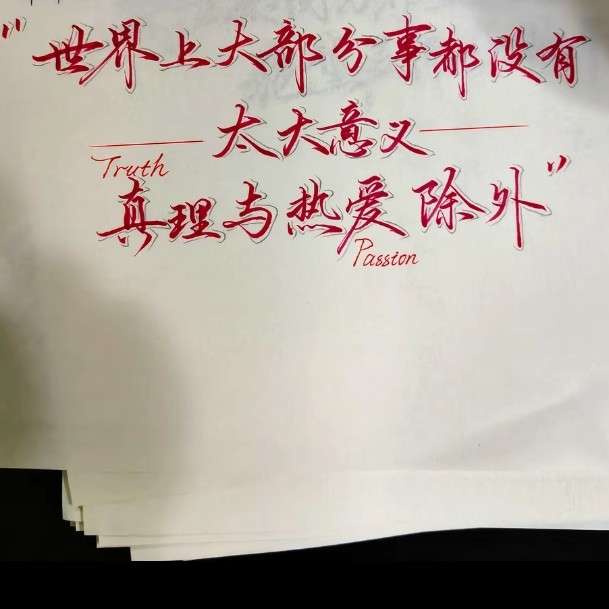 "世界上大部分事都没有
太大意义
Truth
真理与热爱除外"
Passion